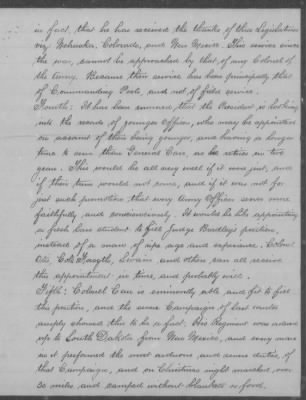 in fact, that he has received the thanks of three Legislatures
viz, Nebraska, Colorado, and New Mexico. This service since
the war, cannot be approached by that of any Colonel of
the Army. Because their service has been principally that
of Commanding Posts, and not of field service.
Fourth: It has been rumored that the President is looking
into the records of younger Officers, who may be appointed
on account of their being younger, and having a longer
time to serve than General Carr, as he retires in two
years. This would be all very well if it was just, and
if their time would not come, and if it was not for
just such promotions that every Army Officer serves more
faithfully and conscientiously. It would be like appointing
a fresh law student to fill Judge Bradley's position,
instead of a man of ripe age and experience. Colonel
Otis, Col. Forsyth, Swain and others, can all receive
this appointment in time, and probably will.
Fifth: Colonel Carr is eminently able and fit to fill
the position, and the severe Campaign of last winter
amply showed this to be a fact. His Regiment was ordered
up to South Dakota from New Mexico, and every man
in it performed the most arduous and severe duties, of
that Campaign, and on Christmas night marched over
50 miles and camped without blankets or food.